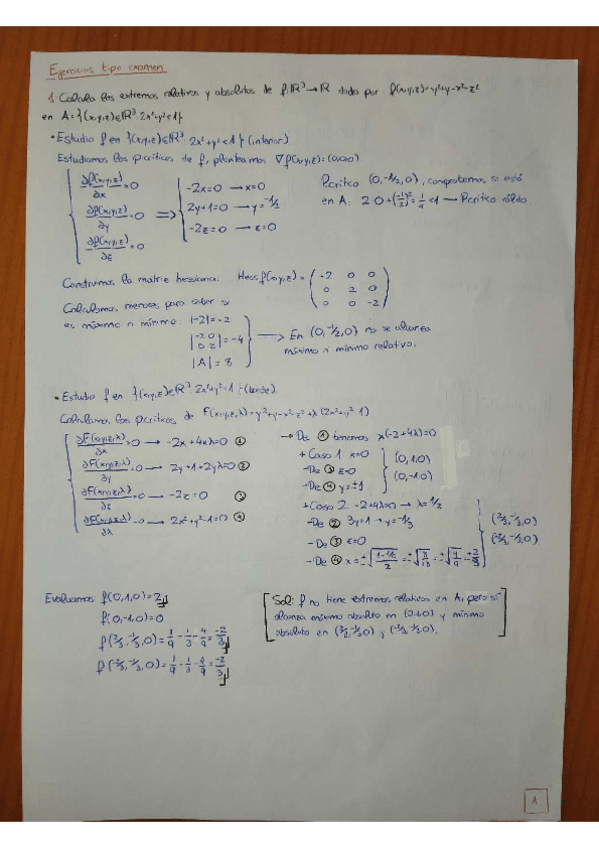 Ejercicios tipo examen
1. Calcula los extremos relativos y absolutos de f:ℝ³→ℝ dada por f(x,y,z)=y²+y-x²-z²
en A={(x,y,z)∈ℝ³: 2x²+y²≤1}.
• Estudio f en {(x,y,z)∈ℝ³: 2x²+y²<1} (interior)
Estudiamos los p.críticos de f, planteamos ∇f(x,y,z)=(0,0,0)
∂f(x,y,z)/∂x=0
∂f(x,y,z)/∂y=0 ⇒
∂f(x,y,z)/∂z=0
-2x=0 → x=0
2y+1=0 → y=-1/2
-2z=0 → z=0
P.crítico (0,-1/2,0), comprobamos si está
en A: 2·0+(-1/2)²=1/4<1 → P.crítico válido
Construimos la matriz hessiana: Hess f(x,y,z)=
-2 0 0
0 2 0
0 0 -2
Calculamos menores para saber si
es máximo o mínimo. |-2|=-2
|-2 0|
|0 2| =-4
|A|=8
→ En (0,-1/2,0) no se alcanza
máximo ni mínimo relativo.
• Estudio f en {(x,y,z)∈ℝ³: 2x²+y²=1} (borde).
Calculamos los p.críticos de F(x,y,z,λ)=y²+y-x²-z²+λ(2x²+y²-1)
∂F(x,y,z,λ)/∂x=0 → -2x+4xλ=0 ①
∂F(x,y,z,λ)/∂y=0 → 2y+1+2yλ=0 ②
∂F(x,y,z,λ)/∂z=0 → -2z=0 ③
∂F(x,y,z,λ)/∂λ=0 → 2x²+y²-1=0 ④
→ De ① tenemos x(-2+4λ)=0
+ Caso 1: x=0
- De ③ z=0
- De ④ y=±1
(0,1,0)
(0,-1,0)
+ Caso 2 -2+4λ=0 → λ=1/2
- De ② 3y=1 → y=-1/3
- De ③ z=0
- De ④ x=±√((1-1/9)/2)=±√(8/18)=±√(4/9)=±2/3
(2/3,-1/3,0)
(-2/3,-1/3,0)
Evaluamos f(0,1,0)=2
f(0,-1,0)=0
f(2/3,-1/3,0)=1/9-1/3-4/9=-2/3
f(-2/3,-1/3,0)=1/9-1/3-4/9=-2/3
Sol: f no tiene extremos relativos en A, pero sí
alcanza máximo absoluto en (0,1,0) y mínimo
absoluto en (2/3,-1/3,0) y (-2/3,-1/3,0).
1